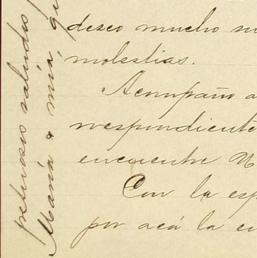 deseo mucho
molestias.
Acompaño a
rrespondiente
encuentre
Con la esp
por acá la
saludos
María & mía, q